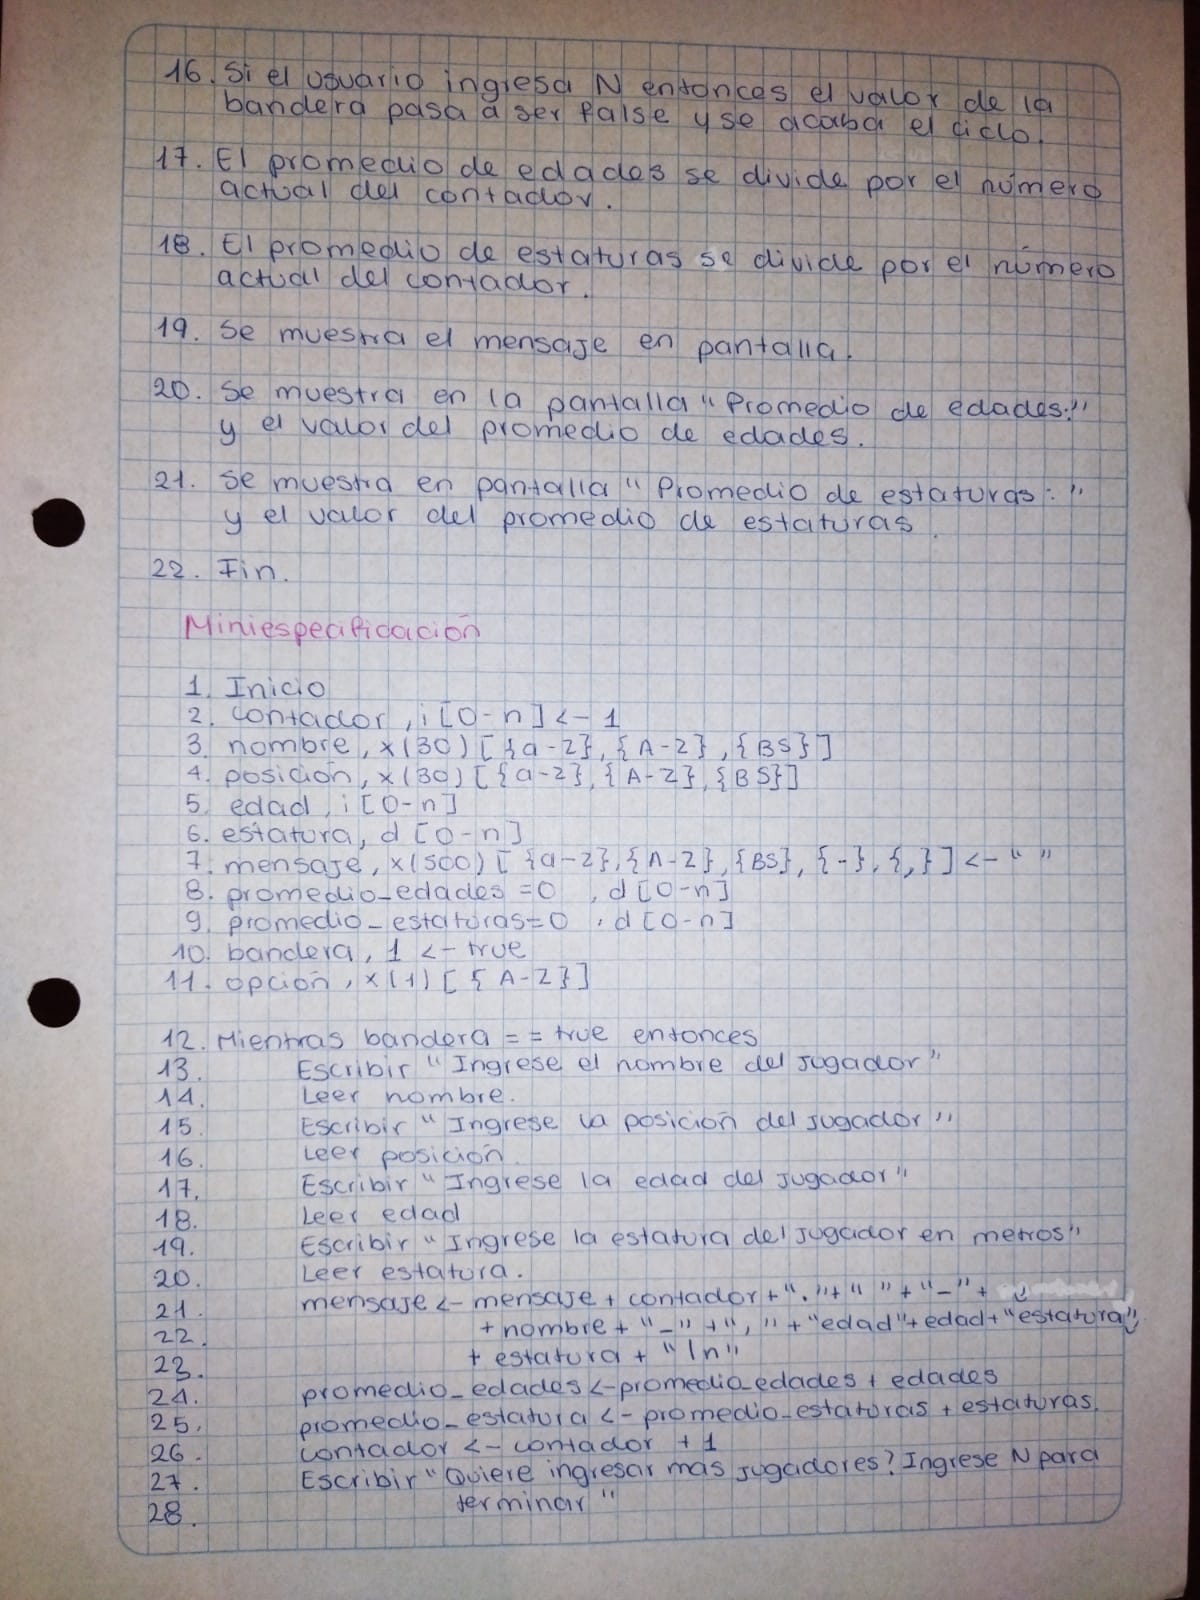 16. Si el usuario ingresa N entonces el valor de la
bandera pasa a ser false y se acaba el ciclo.
17. El promedio de edades se divide por el número
actual del contador.
18. El promedio de estaturas se divide por el número
actual del contador.
19. Se muestra el mensaje en pantalla.
20. Se muestra en la pantalla "Promedio de edades:"
y el valor del promedio de edades.
21. Se muestra en pantalla "Promedio de estaturas: "
y el valor del promedio de estaturas.
22. Fin.
Miniespecificación
1. Inicio
2. contador, i [0-n] <- 1
3. nombre, x(30) [{a-z}, {A-Z}, {BS}]
4. posición, x(30) [{a-z}, {A-Z}, {BS}]
5. edad, i [0-n]
6. estatura, d [0-n]
7. mensaje, x(500) [ {a-z}, {A-Z}, {BS}, {-}, {,}] <- " "
8. promedio_edades =0 , d [0-n]
9. promedio_estaturas=0 , d [0-n]
10. bandera, 1 <- true
11. opción, x(1) [ { A-Z}]
12. Mientras bandera == true entonces
13. Escribir "Ingrese el nombre del jugador"
14. Leer nombre.
15. Escribir "Ingrese la posición del jugador"
16. Leer posición.
17. Escribir "Ingrese la edad del jugador"
18. Leer edad
19. Escribir "Ingrese la estatura del jugador en metros"
20. Leer estatura.
21. mensaje <- mensaje + contador + "." + " " + "-" +
22. + nombre + "-" + ", " + "edad" + edad + "estatura"
23. + estatura + "\n"
24. promedio_edades <- promedio_edades + edades
25. promedio_estatura <- promedio_estaturas + estaturas.
26. contador <- contador + 1
27. Escribir "Quiere ingresar mas jugadores? Ingrese N para
28. terminar"